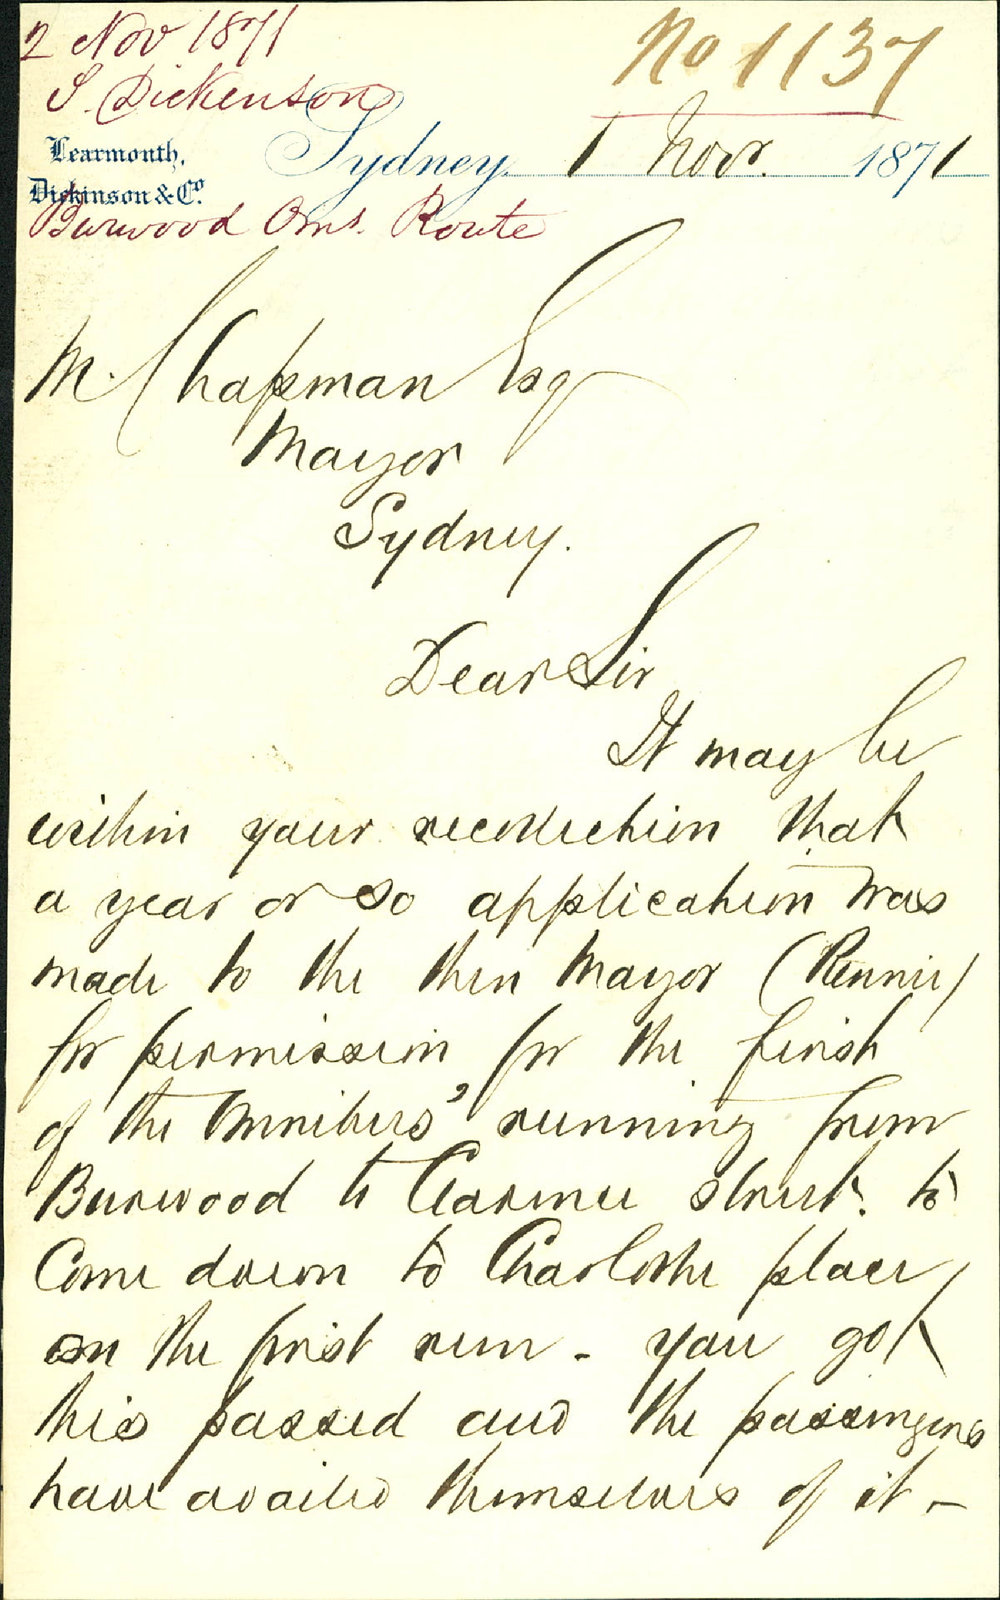 2 Nov 1871
No 1137
S. Dickenson
Learmonth,
Dickinson & Co.
Sydney, 1 Novr. 1871
Burwood Oms. Route
M. Chapman Esq
Mayor
Sydney.
Dear Sir
It may be
within your recollection that
a year or so application was
made to the then Mayor (Rennie)
for permission for the finish
of the Omnibus' running from
Burwood to Clarence street. to
Come down to Charlotte place,
on the first run - you got
this passed and the passengers
have availed themselves of it -